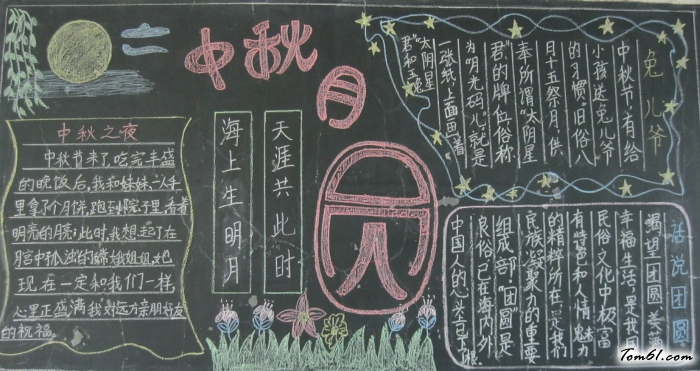 中秋
月
圆
中秋之夜
中秋节来了,吃完丰盛
的晚饭后,我和妹妹一人手
里拿了个月饼,跑到院子里,看着
明亮的月亮,此时,我想起了在
月宫中孤独的嫦娥姐姐,她
现在一定和我们一样,
心里正盛满我对远方亲朋好友
的祝福。
海上生明月
天涯共此时
兔儿爷
中秋节,有给
小孩送兔儿爷
的习惯。旧俗八
月十五祭月,供
奉所谓"太阴星
君"的牌位,俗称
为"月光码儿",就是
一张纸,上面画着
"太阴星
君"和玉兔
话说团圆
渴望团圆、美满
幸福生活,是我国
民俗文化中极富
和人情魅力
的精粹所在,是我们
民族凝聚力的重要
组成部"团圆"是
良俗,已在海内外
中国人的心头
Tom61.com